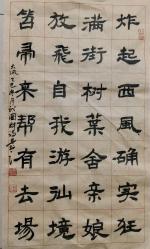 炸起西風确实狂
满街树葉舍亲娘
放飛自我游仙境
笤帚来帮有去場